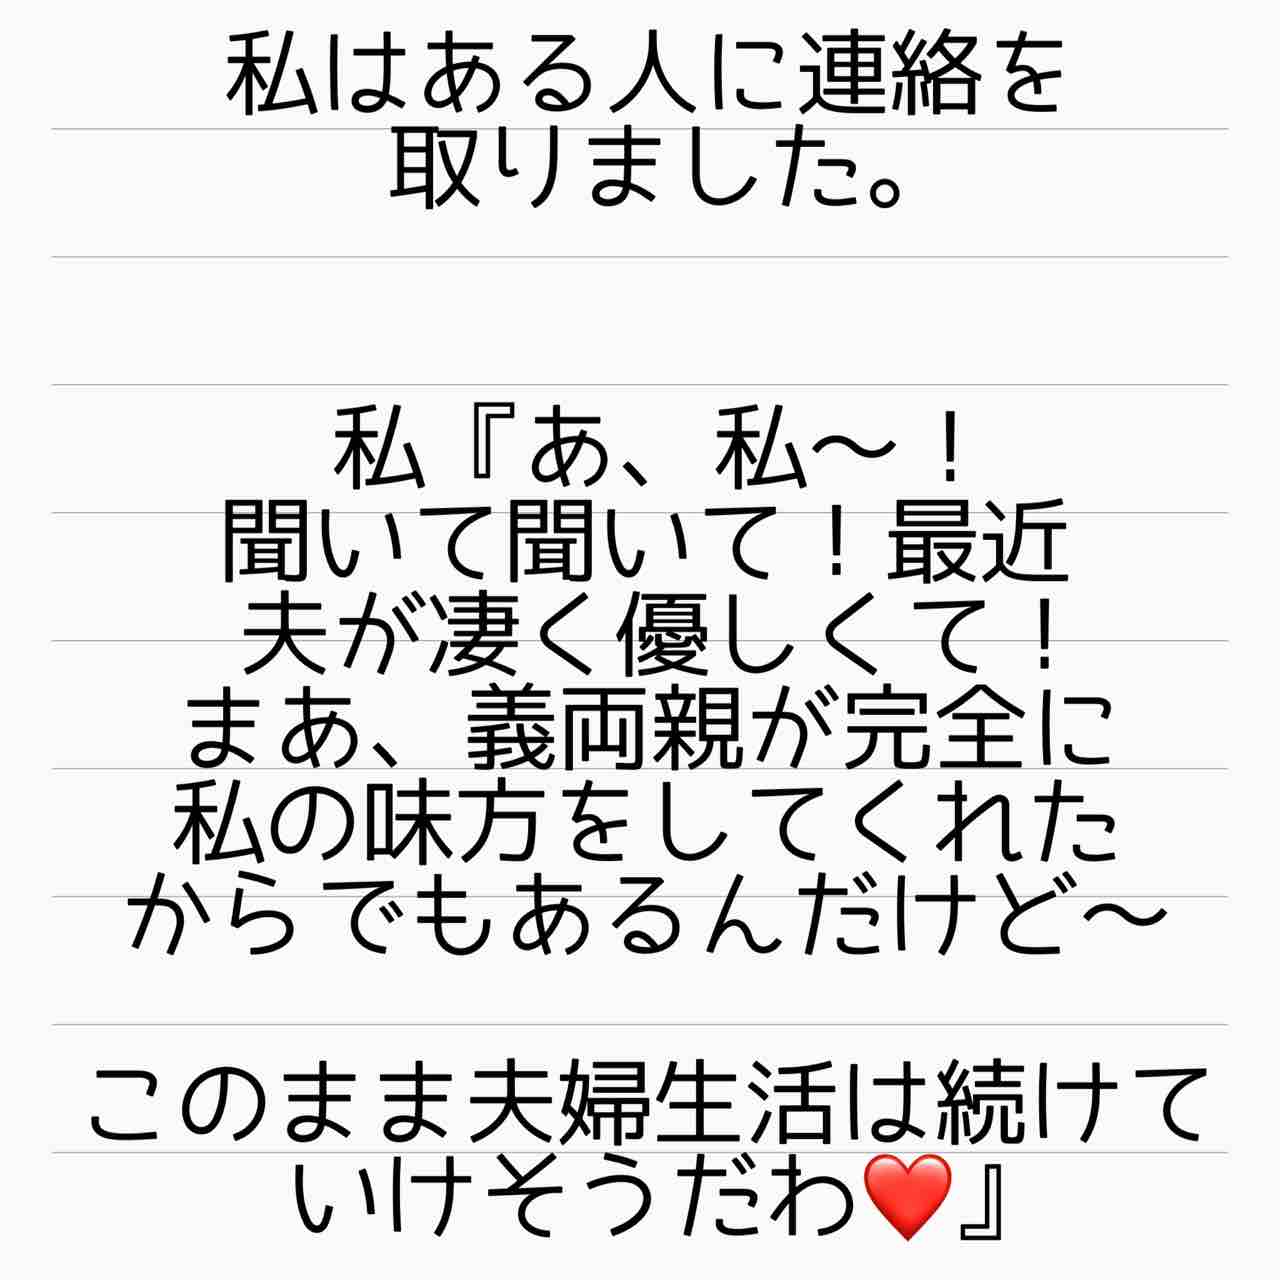 私はある人に連絡を
取りました。
私『あ、私〜！
聞いて聞いて！最近
夫が凄く優しくて！
まあ、義両親が完全に
私の味方をしてくれた
からでもあるんだけど〜
このまま夫婦生活は続けて
いけそうだわ❤️』